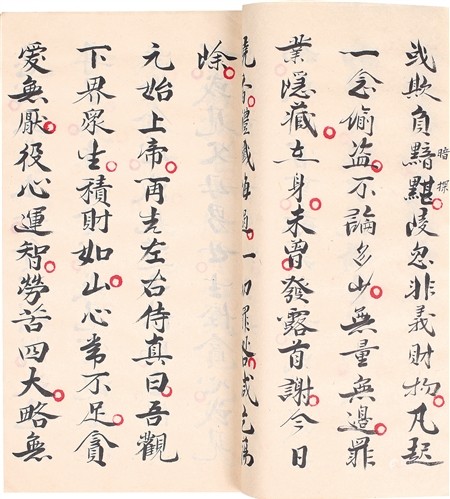 或欺負黯黮陵忽非義財物凡起
暗 探
一念偷盗不論多少無量無邊罪
業隱藏在身未曾發露首謝今日
禮懺悔過一切罪
除
元始上帝再告左右侍真曰吾觀
下界衆生積財如山心常不足貪
愛無厭役心運智勞苦四大略無